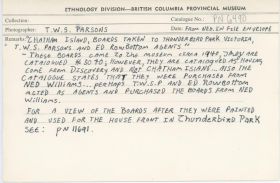 ETHNOLOGY DIVISION—BRITISH COLUMBIA PROVINCIAL MUSEUM
Collection:
Catalogue No.: PN 6490
Photographer: T.W.S. PARSONS
Date: FROM NEG. IN FILE ENVELOPE
Remarks: "CHATHAM ISLAND, BOARDS TAKEN TO THUNDERBIRD PARK VICTORIA,
T.W.S. PARSONS AND ED. ROWBOTTOM AGENTS"
- THESE BOARDS CAME TO THE MUSEUM CIRCA 1940, THEY ARE
CATALOGUED HOWEVER, THEY ARE CATALOGUED AS HAVING
COME FROM DISCOVERY AND NOT CHATHAM ISLAND... ALSO THE
CATALOGUE STATES THAT THEY WERE PURCHASED FROM
NED WILLIAMS... PERHAPS, T.W.S.P AND ED ROWBOTTOM
ACTED AS AGENTS AND PURCHASED THE BOARDS FROM NED
WILLIAMS.
FOR A VIEW OF THE BOARDS AFTER THEY WERE PAINTED
AND USED FOR THE HOUSE FRONT IN THUNDERBIRD PARK
SEE: PN 11691.